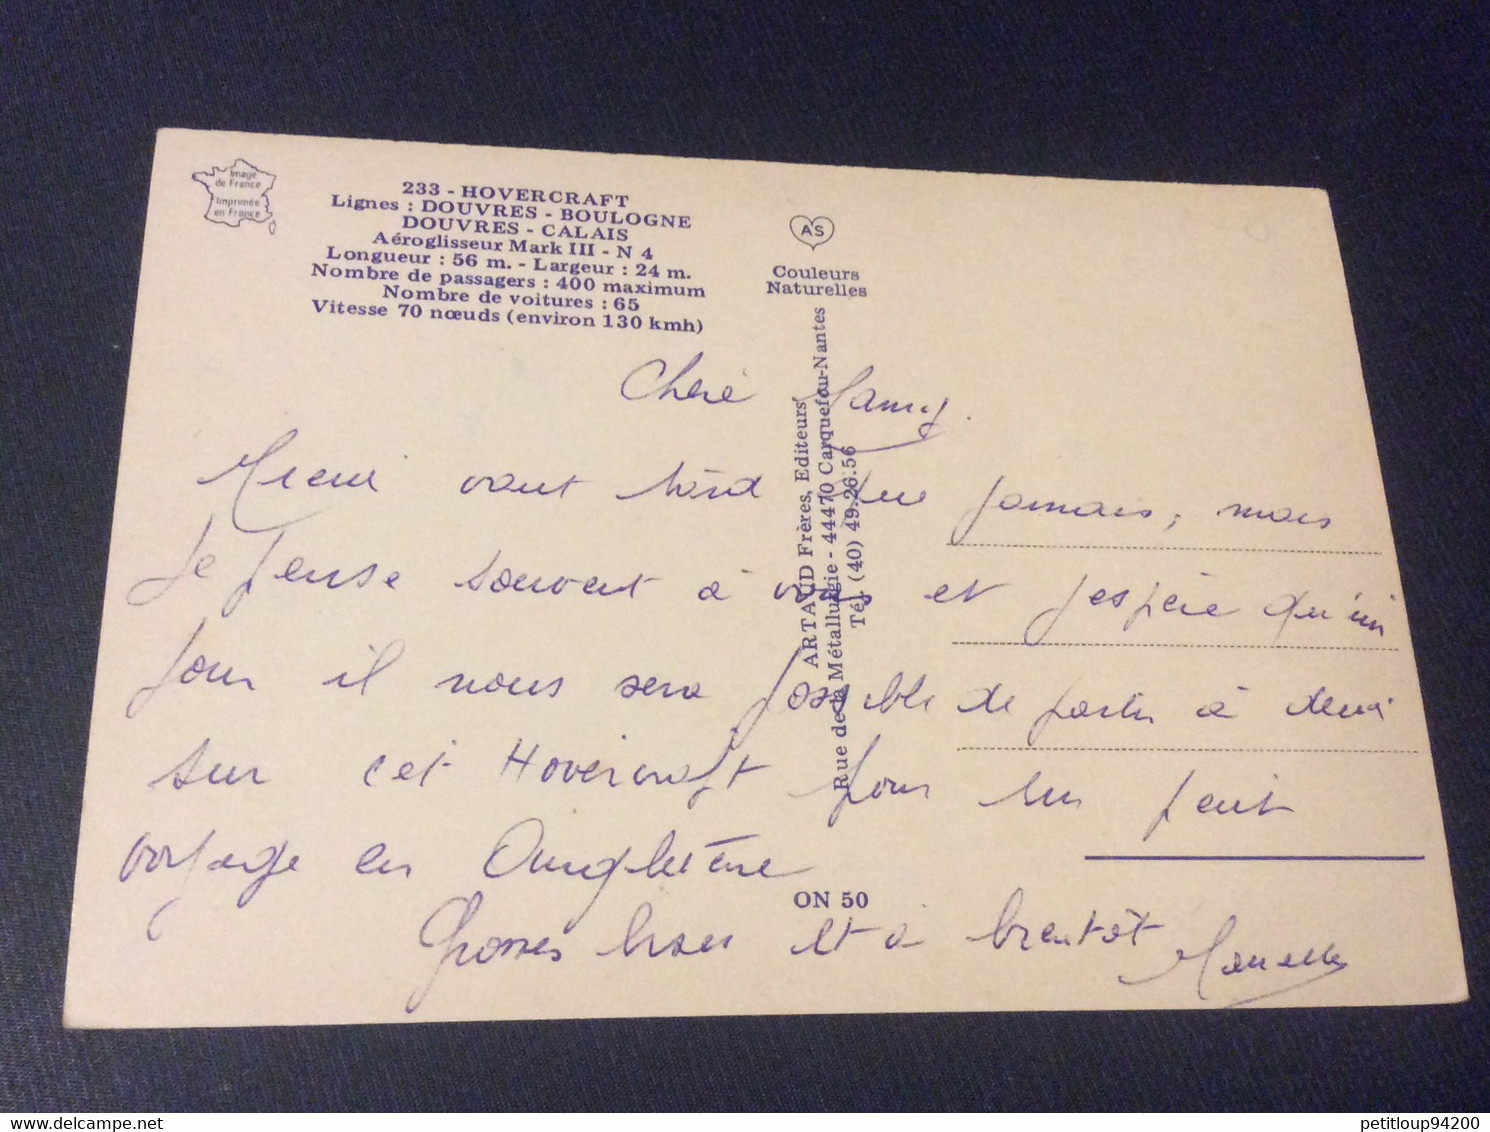 Image
de France
Imprimée
en France
233 - HOVERCRAFT
Lignes : DOUVRES - BOULOGNE
DOUVRES - CALAIS
Aéroglisseur Mark III - N 4
Longueur : 56 m. - Largeur : 24 m.
Nombre de passagers : 400 maximum
Nombre de voitures : 65
Vitesse 70 nœuds (environ 130 kmh)
AS
Couleurs
Naturelles
ARTAUD Frères, Editeurs
Rue de la Métallurgie - 44470 Carquefou-Nantes
Tél. (40) 49.26.56
Chère Mamy.
Mieux vaut tard que jamais, mais
je pense souvent à vous et j'espère qu'un
jour il nous sera possible de partir à deux
sur cet Hovercraft pour un petit
voyage en Angleterre
Grosses bises et à bientôt
ON 50
petitloup94200